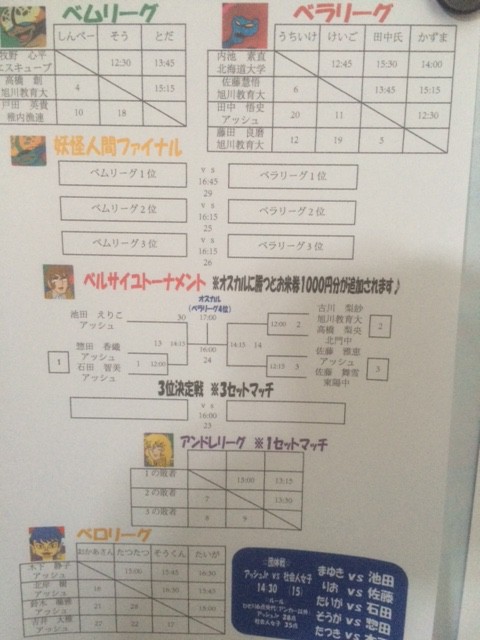 ベムリーグ
しんぺー そう とだ
牧野 心平
エスキューブ 12:30 13:45
高橋 創
旭川教育大 4 15:15
戸田 英貴
稚内漁連 10 18
ベラリーグ
うちいけ けいご 田中氏 かずま
内池 素直
北海道大学 12:45 15:30 14:00
佐藤慧悟
旭川教育大 6 13:45 15:15
田中 悟史
アッシュ 20 11 12:30
藤田 良磨
旭川教育大 12 19 5
妖怪人間ファイナル
ベムリーグ1位 vs 16:45 29 ベラリーグ1位
ベムリーグ2位 vs 16:15 25 ベラリーグ2位
ベムリーグ3位 vs 16:15 26 ベラリーグ3位
ベルサイユトーナメント ※オスカルに勝つとお米券1000円分が追加されます♪
オスカル
(ベラリーグ4位)
池田 えりこ
アッシュ
30 17:00
惣田 香織
アッシュ
1
石田 智美
アッシュ
13 14:15
1 12:00
16:00
24
16:15 14
12:00 2
12:15 3
古川 梨紗
旭川教育大
2
高橋 梨央
北門中
佐藤 雅恵
アッシュ
3
佐藤 舞雪
東陽中
3位決定戦 ※3セットマッチ
vs
16:00
23
アンドレリーグ ※1セットマッチ
1の敗者 13:00 13:15
2の敗者 7 13:30
3の敗者 8 9
ベロリーグ
おかあさん たつたつ そうくん たいが
木下 静子
アッシュ 15:00 15:45 16:30
アッシュ 16 16:30 15:45
アッシュ 21 28 15:00
吉井 大雅
アッシュ 27 22 17
団体戦
アッシュJr vs 社会人女子
14:30 (15)
ルール
アッシュJr 28点
社会人女子 25点
まゆき vs 池田
りお vs 佐藤
たいが vs 石田
そうが vs 惣田
たつき vs